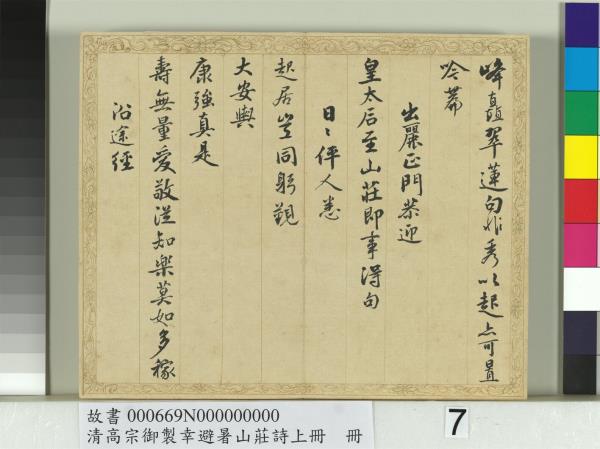 峰矗翠蓮句非秀以起上可置
吟篇
出麗正門恭迎
皇太后至山莊即事得句
日〻伻人悉
起居豈同躬覲
大安輿
康強真是
壽無量愛敬從知樂莫如多稼
沿途經
故書 000669N000000000
清高宗御製幸避暑山莊詩上冊 冊
7